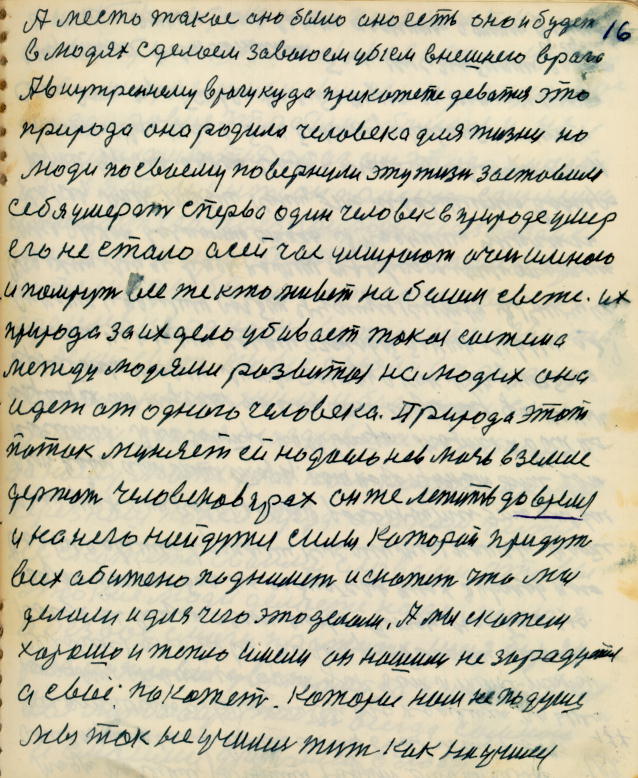 А место такое оно было оно есть оно и будет 16
в людях сделаем завоюем убем внешнего врага
А внутреннему врагу куда прикажете деватся это
природа она родила человека для жизни но
люди по своему повернули эту жизн заставили
себя умерат сперва один человек в природе умер
его не стало а сей час умирают очен много
и помрут все же кто живет на белим свете. их
природа за их дело убивает такая система
между людями развитая на людих она
идет от одного человека. Природа этот
поток меняет ей надоело невмоч в земле
держат человеков прах он же лежить до время
и на него найдутся силы каторые придут
всих обижено поднимет и скажет что мы
делали и для чего это делали. А мы скажем
хорошо и тепло имели он нашим не зарадуется
а своё покажет. каторые нам не по душе
мы так не учимся жит как научимся